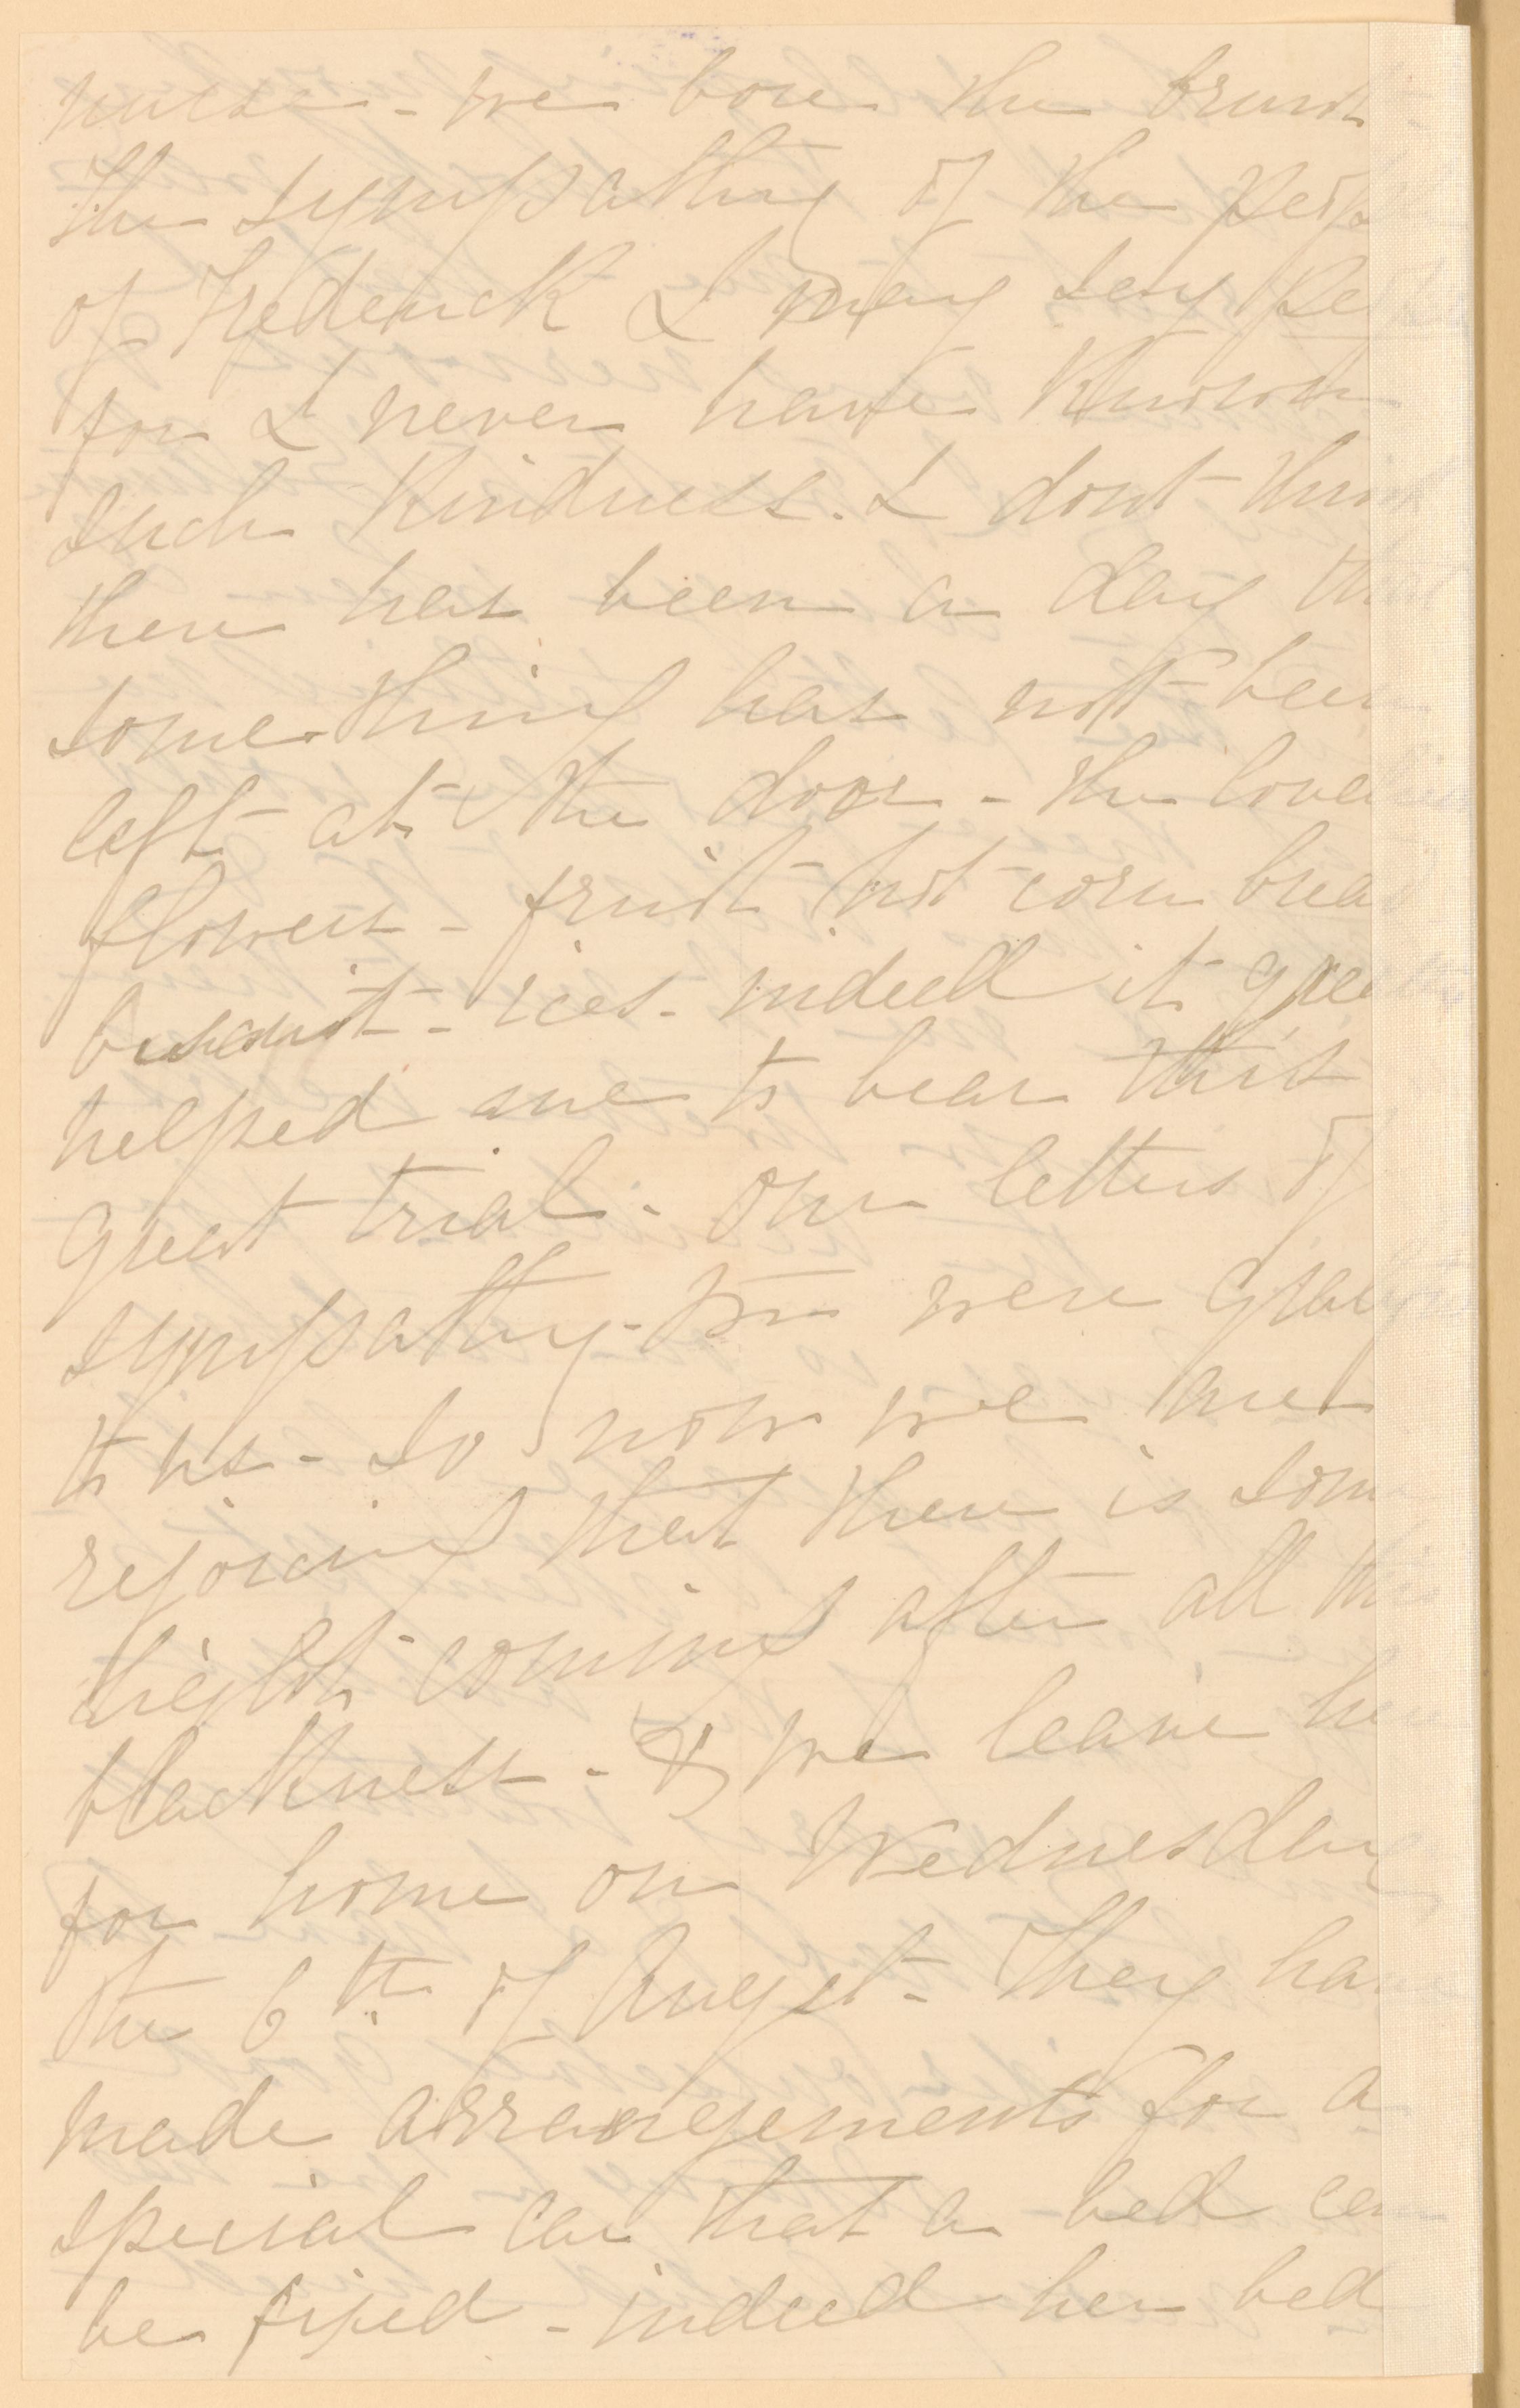 nurse - we bore the brunt
the sympathy of the people
of Frederick I may say people
for I never have known
such kindness. I dont think
there has been a day that
something has not been
left at the door - the loveliest
flowers - fruit hot corn bread
biscuit - ices. indeed it greatly
helped me to bear this
great trial - our letters of
sympathy - too were grateful
to us - so now we are
rejoicing that there is some
light coming after all this
blackness - & we leave here
for home on Wednesday
the 6th of August - They have
made arrangements for a
special car that a bed can
be fixed - indeed her bed